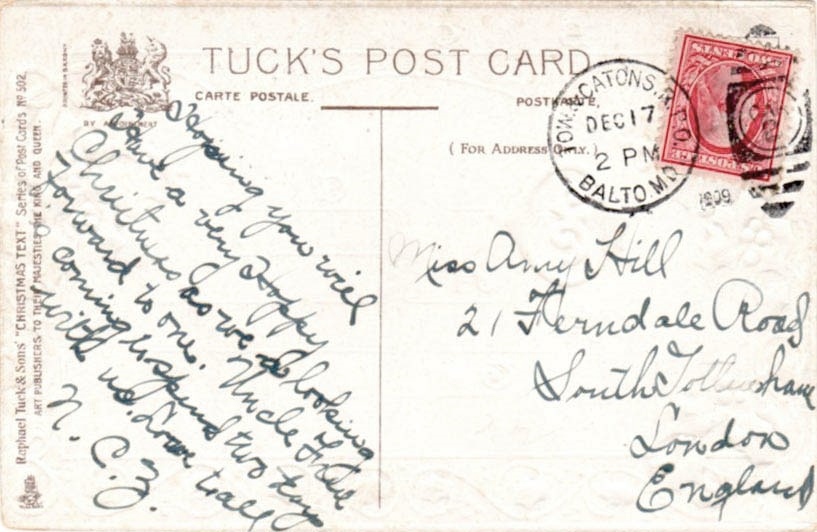 TUCK'S POST CARD.
CARTE POSTALE.
POSTKARTE,
(FOR ADDRESS ONLY.)
BY APPOINTMENT
PRINTED IN SAXONY
Raphael Tuck & Sons' "CHRISTMAS TEXT" Series of Post Cards Nº 502.
ART PUBLISHERS TO THEIR MAJESTIES THE KING AND QUEEN.
DEC 17
2 PM
BALTO. MD.
1909
Hoping you will
have a very Happy
Christmas as we are looking
forward to one. Uncle
coming & spend two days
with us. Love to all
N. C. Z.
Miss Amy Hill
21 Ferndale Road
South Tottenham
London
England